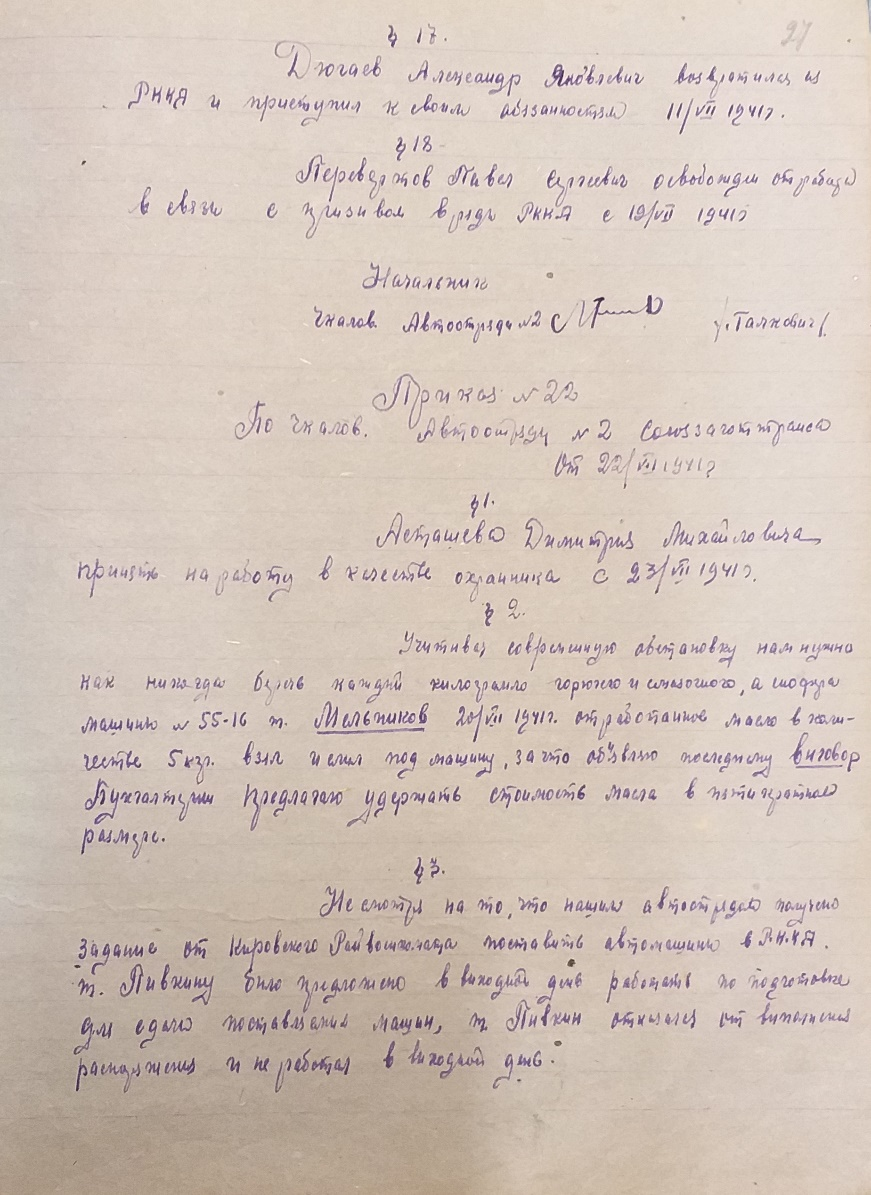 27
§ 17.
Дюгаев Александр Яковлевич возвратился из
РККА и приступил к своим обязанностям 11/VII 1941г.
§ 18
Павел Сергеевич освобожден от работы
в связи с призывом в ряды РККА с 19/VII 1941г
Начальник
Чкалов. Автоотряда №2 /Галкович/.
Приказ № 22
По Чкалов. Автоотряду № 2 Союззаготтранса
От 22/VII 1941г
§ 1.
Асташева Димитрия Михайловича
принять на работу в качестве охранника с 23/VII 1941г.
§ 2.
Учитивая современную обстановку нам нужно
как никогда беречь каждый килограмм горючего и смазочного, а шофера
машины № 55-16 т. Мельников 20/VII 1941г. отработанное масло в коли-
честве 5 кгр. взял и слил под машину, за что объявляю последнему виговор
Бухгалтерии предлагаю удержать стоимость масла в пятикратном
размере.
§ 3.
Несмотря на то, что нашим автоотрядом получено
задание от Кировского Райвоенкомата поставить автомашины в РККА.
т. Пивкину было предложено в виходной день работать по подготовке
для сдачи поставляемих машин, т. Пивкин отказался от виполнения
распоряжения и не работал в виходной день.